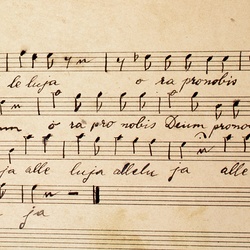 le luja o ra pro nobis
um o ra pro nobis Deum prono
ja alle luja allelu ja alle
ja